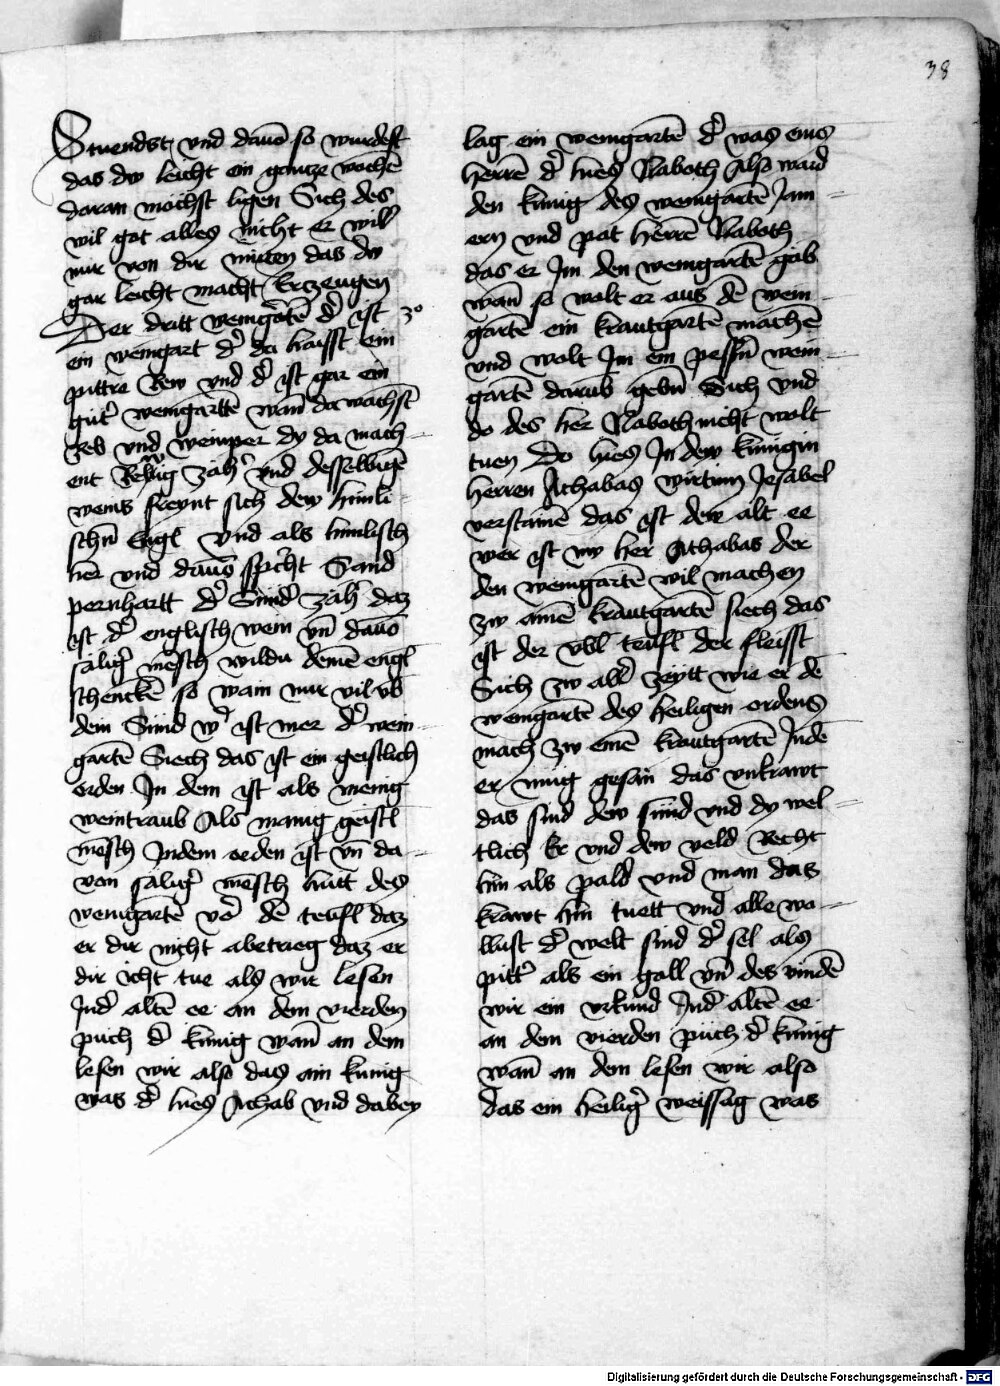 38
Stuendst vnd dauō so wurdest
das dw leicht ein gancze wochē
daran möchst ligen Sich des
wil got alles nicht er wil
nur von dir müten das dw
gar leicht macht Erczeugen
Der dritt weingartē d' ist 3o
ein weingart d' da haisst ein
pittre Rew vnd d' ist gar ein
gut' weingarttē wan̄ da wachst
Reb vnd weinper dy da mach-
ent Rewig zäh' vnd desselbigē
weins freynt sich dew himli-
schn̄ Engl vnd als himlisch
her vnd dauō spricht Sand
pernhartt d' Sünd' zäh' daz
ist d' englisch wein vn̄ dauō
sälig' mēsch wildu deinē engl
schenckē so wain nur vil vb'
dein Sünd w' ist mer d' wein-
gartē Siech das ist ein geistlich
orden In dem ist als menig
weintraub Als manig geistl
mēsch Indem orden ist vn̄ da-
von sälig' mēsch hütt des
weingartē vō dē teufl daz
er dir nicht abetrieg daz er
dir icht tue als wir lesen
Ind' altē ee an dem vierden
puch d' künig wan̄ an dem
lesen wir also das ain kunig
was d' hies Achab vnd dabey
lag ein weingartē d' was eins
herrē d' hies Naboth Also ward
den künig des weingartē Jam-
ern vnd pat herrē Naboth
das er Im den weingartē gäb
wan̄ so wolt er aus dē wein-
gartē ein krautgartē machē
vnd wolt Im ein pessn̄ wein-
gartē darūb gebn̄ Sich vnd
do des her Naboth nicht wolt
tuen Do hies In dew künigin
herren Achabas wirtinn Jesabel
verstainē das ist dew alt ee
wer ist nw her Achabas der
den weingartē wil machen
zw ainē krautgartē siech das
ist der vbl teufl der fleisst
Sich zw all' zeytt wie er dē
weingartē des heiligen ordens
mach zw einē krautgartē Indē
er müg gesān das vnkrawt
das sind dew sünd vnd dy wel-
tlich Er vnd dew veld Recht
hin als pald vnd man das
krawt hin tuett vnd alle wo-
llust d' welt sind d' sel als
pitt' als ein gall vn̄ des vindē
wir ein vrkund Ind' altē ee
an dem vierden puch d' künig
wan̄ an dem lesen wir also
das ein heilig' weissag was
Digitalisierung gefördert durch die Deutsche Forschungsgemeinschaft - DFG